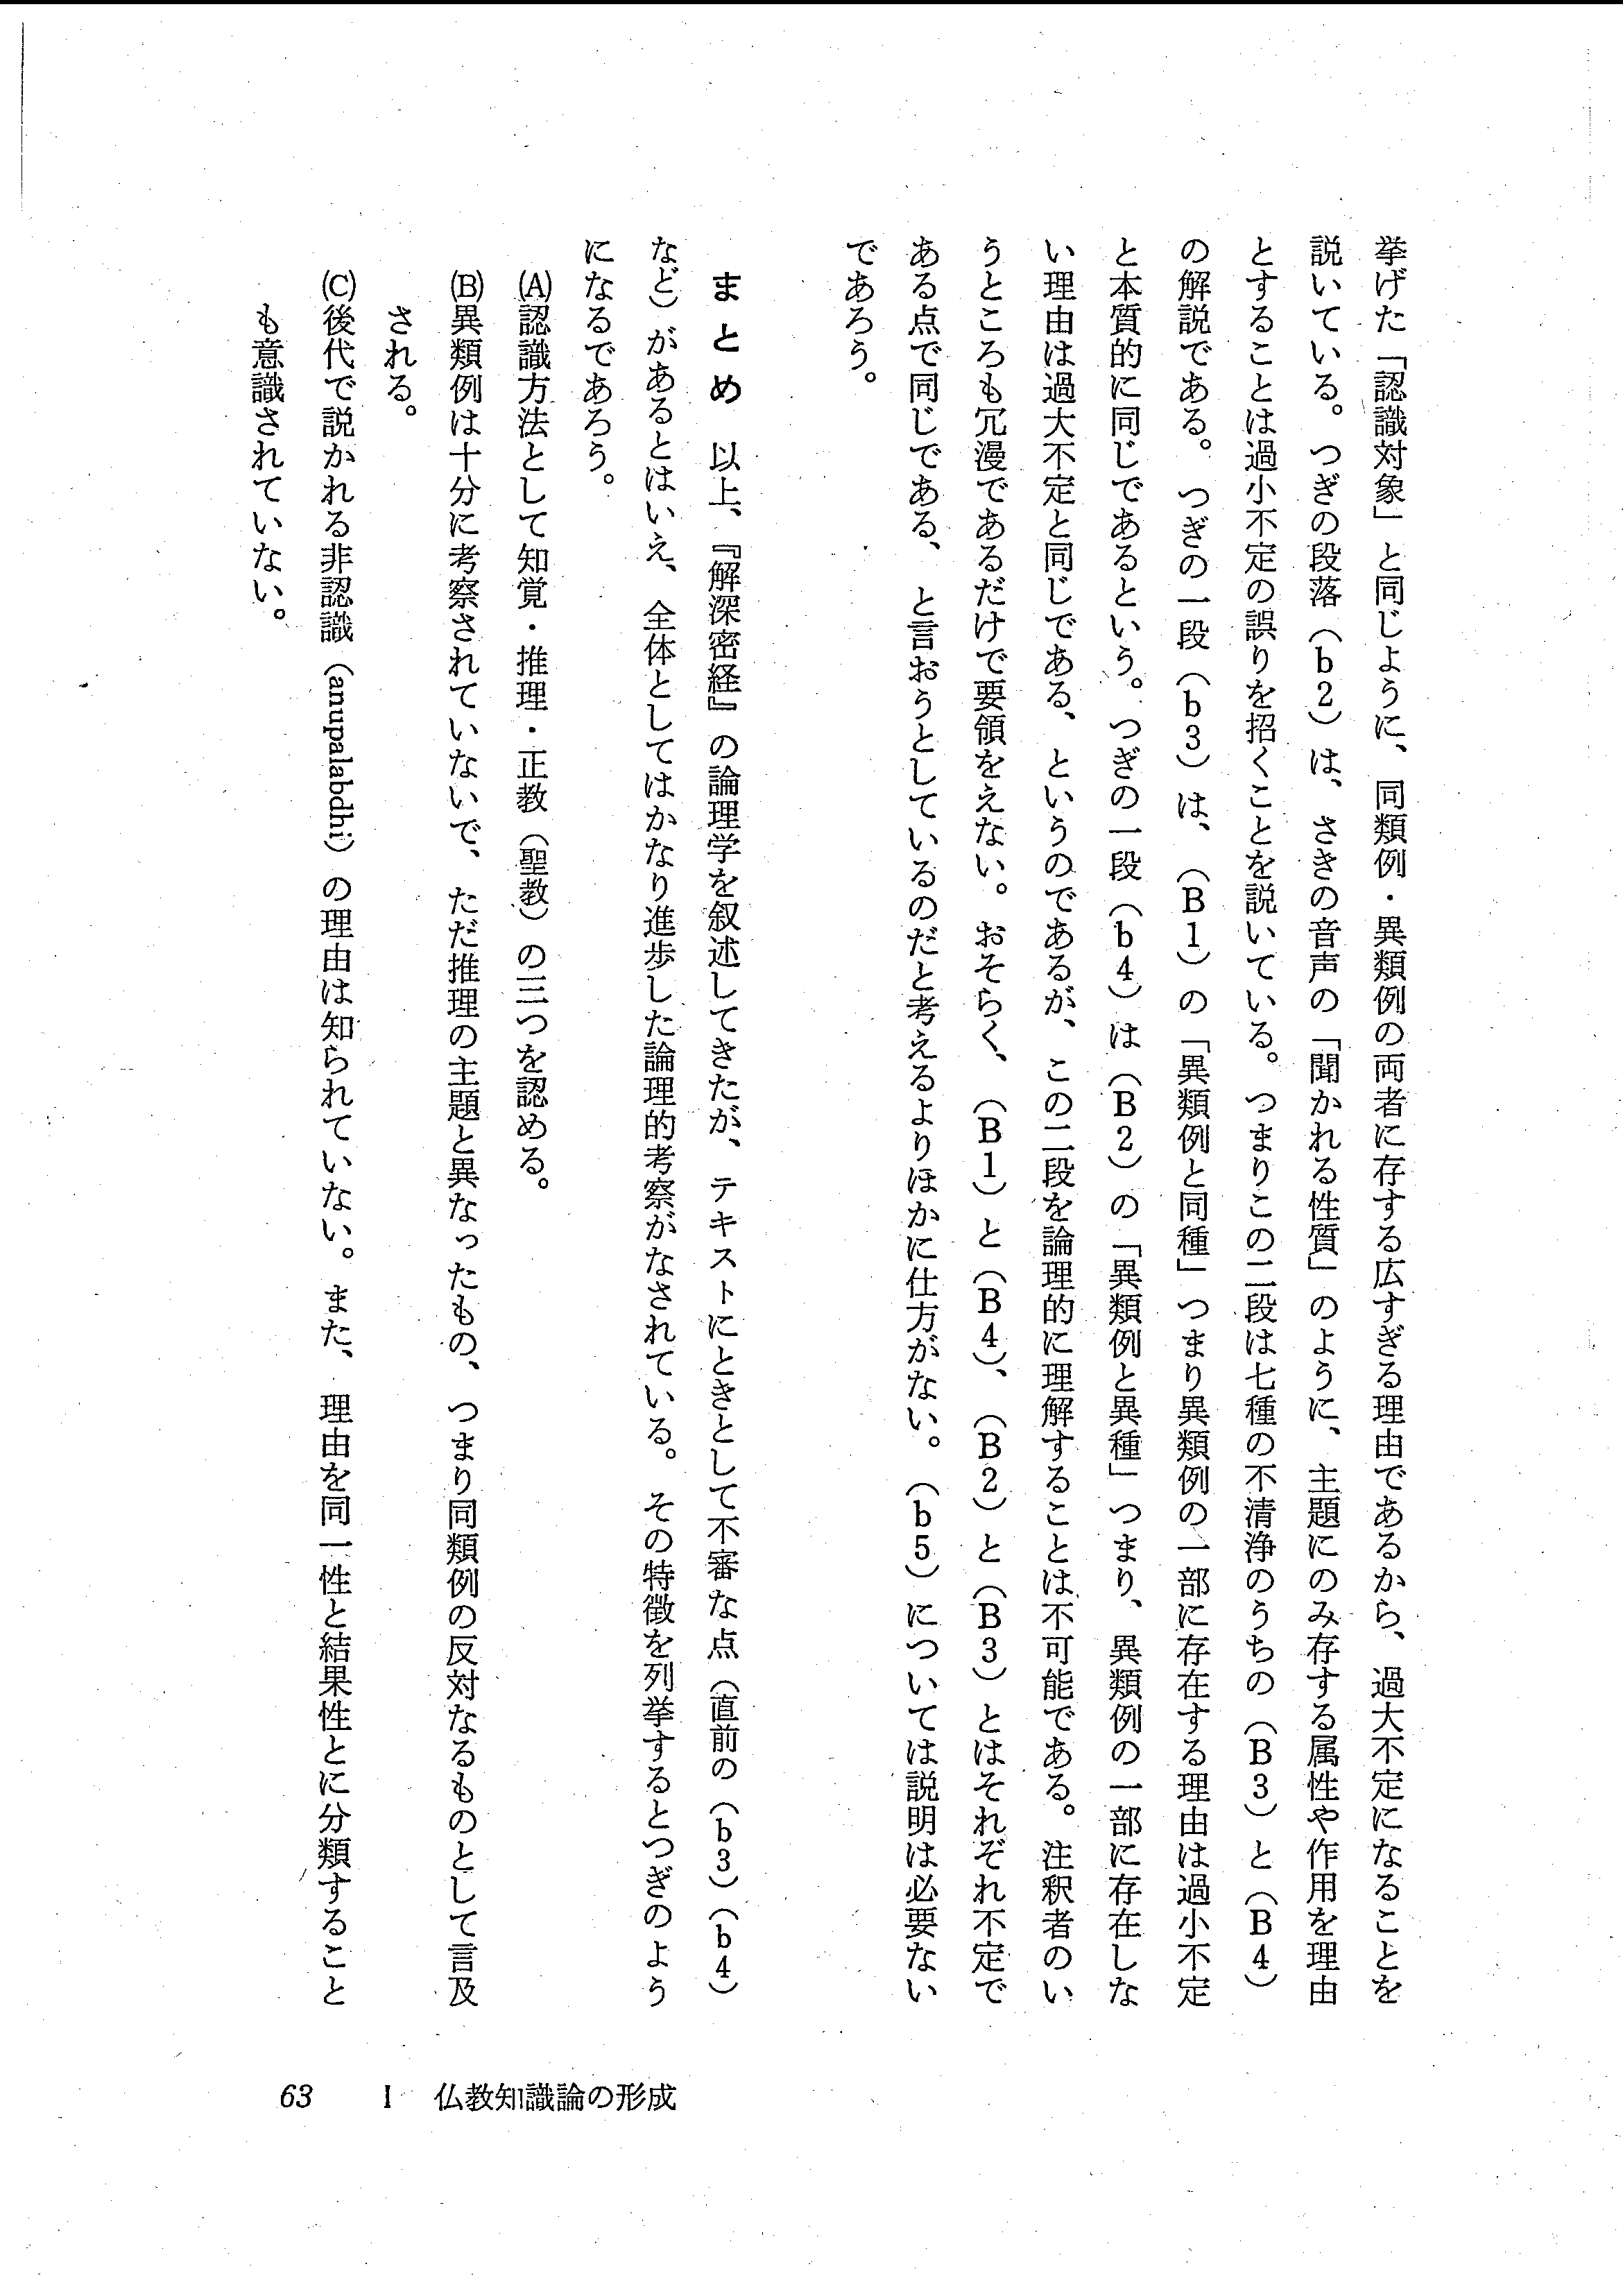 挙げた「認識対象」と同じように、同類例・異類例の両者に存する広すぎる理由であるから、過大不定になることを
説いている。つぎの段落（b2）は、さきの音声の「聞かれる性質」のように、主題にのみ存する属性や作用を理由
とすることは過小不定の誤りを招くことを説いている。つまりこの二段は七種の不清浄のうちの（B3）と（B4）
の解説である。つぎの一段（b3）は、（B1）の「異類例と同種」つまり異類例の一部に存在する理由は過小不定
と本質的に同じであるという。つぎの一段（b4）は（B2）の「異類例と異種」つまり、異類例の一部に存在しな
い理由は過大不定と同じである、というのであるが、この二段を論理的に理解することは不可能である。注釈者のい
うところも冗漫であるだけで要領をえない。おそらく、（B1）と（B4）、（B2）と（B3）とはそれぞれ不定で
ある点で同じである、と言おうとしているのだと考えるよりほかに仕方がない。（b5）については説明は必要ない
であろう。
まとめ　以上、『解深密経』の論理学を叙述してきたが、テキストにときとして不審な点（直前の（b3）（b4）
など）があるとはいえ、全体としてはかなり進歩した論理的考察がなされている。その特徴を列挙するとつぎのよう
になるであろう。
(A)認識方法として知覚・推理・正教（聖教）の三つを認める。
(B)異類例は十分に考察されていないで、ただ推理の主題と異なったもの、つまり同類例の反対なるものとして言及
される。
(C)後代で説かれる非認識（anupalabdhi）の理由は知られていない。また、理由を同一性と結果性とに分類すること
も意識されていない。
63　I　仏教知識論の形成